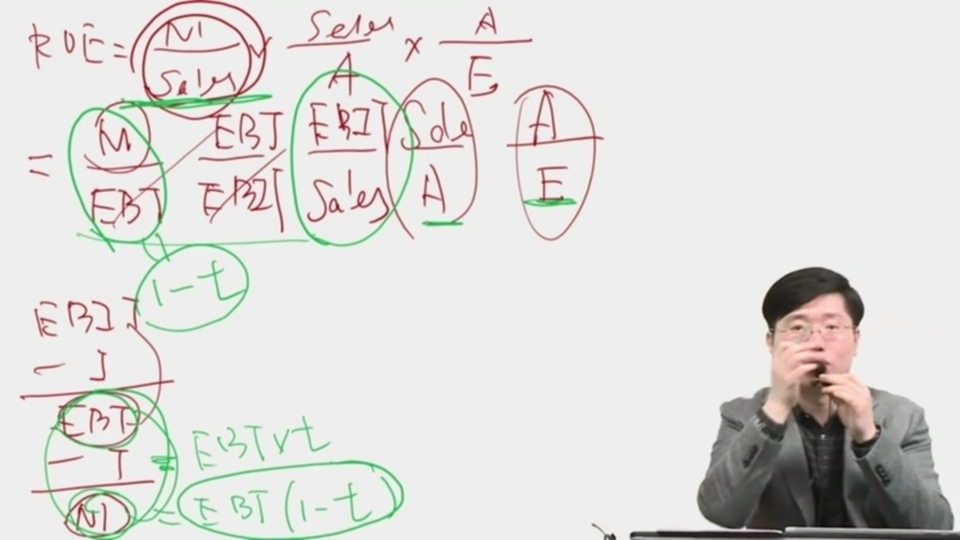 ROE = NI/Sales × Sales/A × A/E
= NI/EBT EBT/EBIT EBIT/Sales Sale/A A/E
1-t
EBIT
- I
EBT
- T = EBT×t
NI = EBT(1-t)